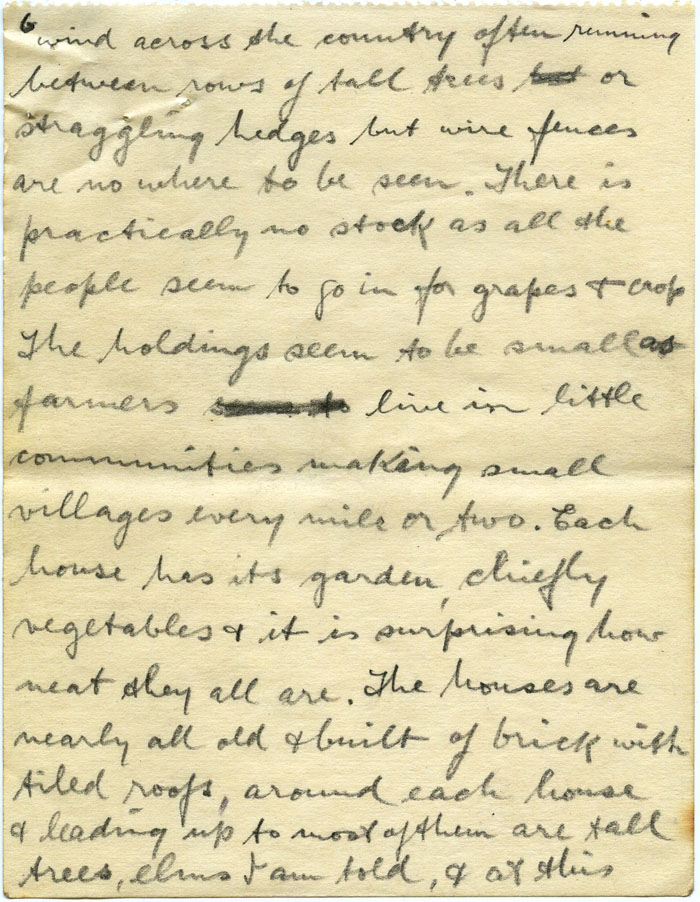 6
wind across the country often running
between rows of tall trees or
straggling hedges but wire fences
are no where to be seen. There is
practically no stock as all the
people seem to go in for grapes & crop
The holdings seem to be small as
farmers live in little
communities making small
villages every mile or two. Each
house has its garden, chiefly
vegetables & it is surprising how
neat they all are. The houses are
nearly all old & built of brick with
tiled roofs, around each house
& leading up to most of them are tall
trees, elms I am told, & at this